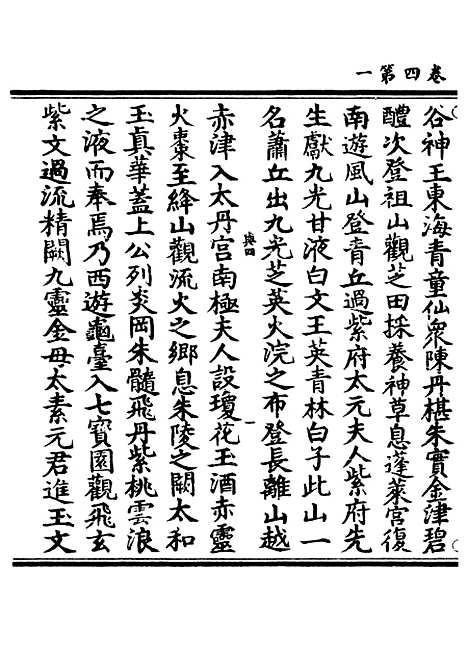 卷四第一
谷神王東海青童仙衆陳丹椹朱實金津碧
醴次登祖山觀芝田採養神草息蓬萊宮復
南遊風山登青丘過紫府太元夫人紫府先
生獻九光甘液白文王英青林白子此山一
名蕭丘出九光芝英火浣之布登長離山越
赤津入太丹宮南極夫人設瓊花玉酒赤靈
火棗至絳山觀流火之鄉息朱陵之闕太和
玉真華蓋上公列炎岡朱髓飛丹紫桃雲浪
之液而奉焉乃西遊龜臺入七寶園觀飛玄
紫文過流精闕九靈金母太素元君進玉文